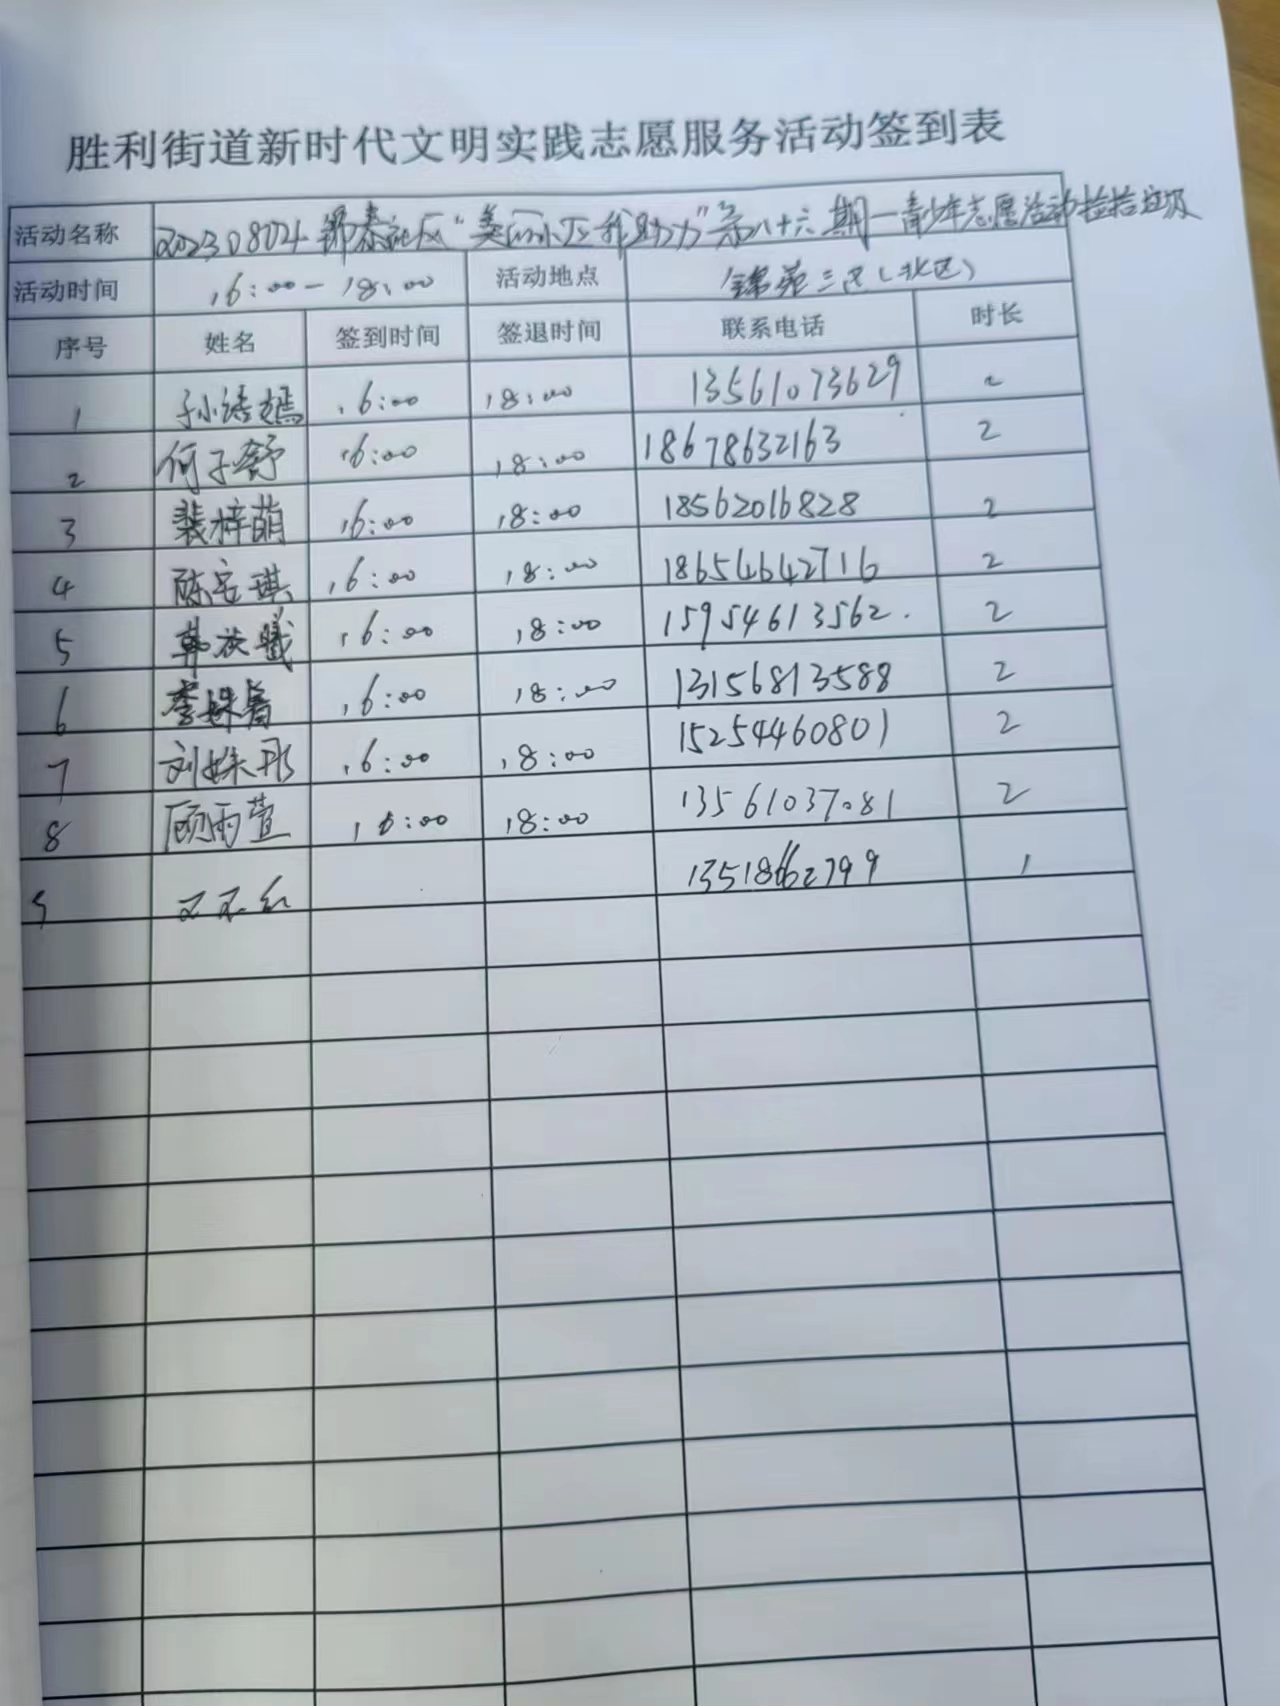 胜利街道新时代文明实践志愿服务活动签到表
活动名称 20230804 锦泰社区“美丽小区我助力”第八十六期—青少年志愿活动捡拾垃圾
活动时间 16:00-18:00 活动地点 锦苑三区(北区)
序号 姓名 签到时间 签退时间 联系电话 时长
1 孙 嫣 16:00 18:00 13561073629 2
2 何子舒 16:00 18:00 18678632163 2
3 裴梓萌 16:00 18:00 18562016828 2
4 陈安琪 16:00 18:00 18654642716 2
5 韩 曦 16:00 18:00 15954613562 2
6 李姝 16:00 18:00 13156813588 2
7 刘姝彤 16:00 18:00 15254460801 2
8 顾雨萱 16:00 18:00 13561037081 2
9 13518662799 1